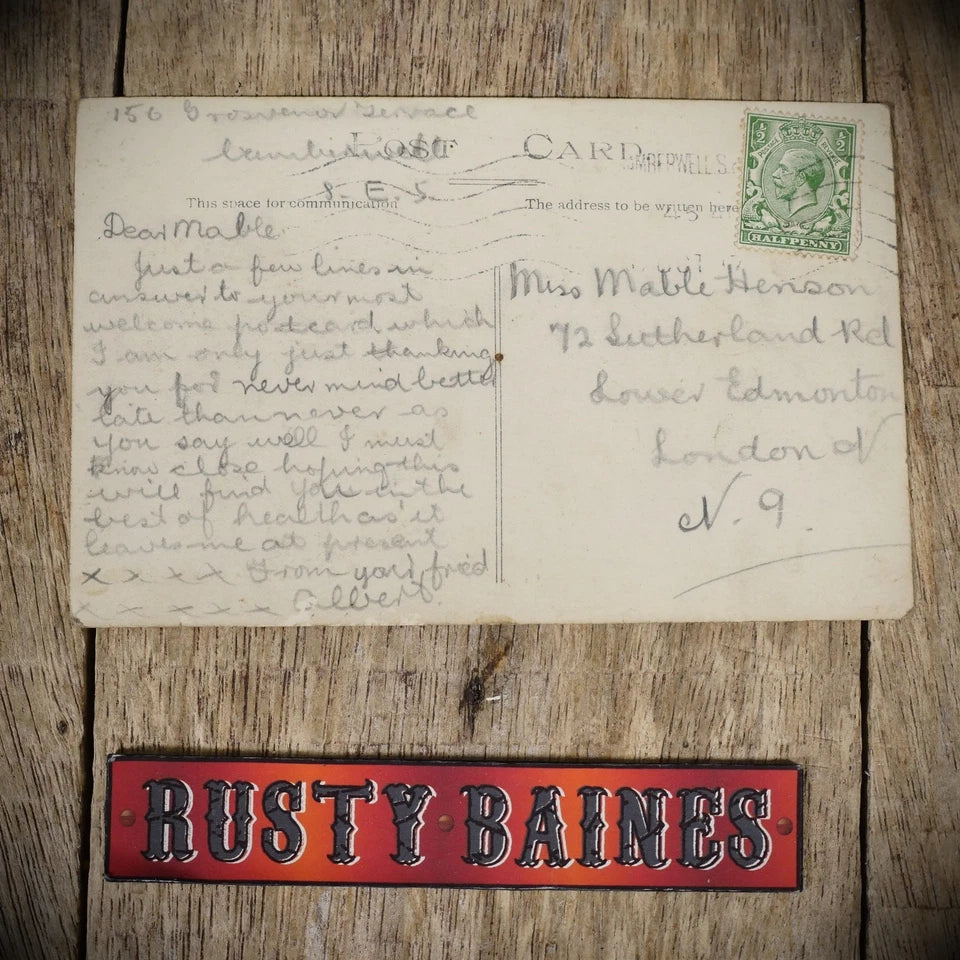 156 Grosvenor Terrace
Camberwell
S. E. 5
POST CARD
This space for communication
The address to be written here
MBERWELL S.
½ ½
HALFPENNY
Dear Mable
Just a few lines in
answer to your most
welcome postcard which
I am only just thanking
you for never mind better
late than never as
you say well I must
know close hoping this
will find you in the
best of health as it
leaves me at present
x x x x From your fried
x x x x x Albert.
Miss Mable Henson
72 Sutherland Rd
Lower Edmonton
London N
N. 9.
RUSTY BAINES